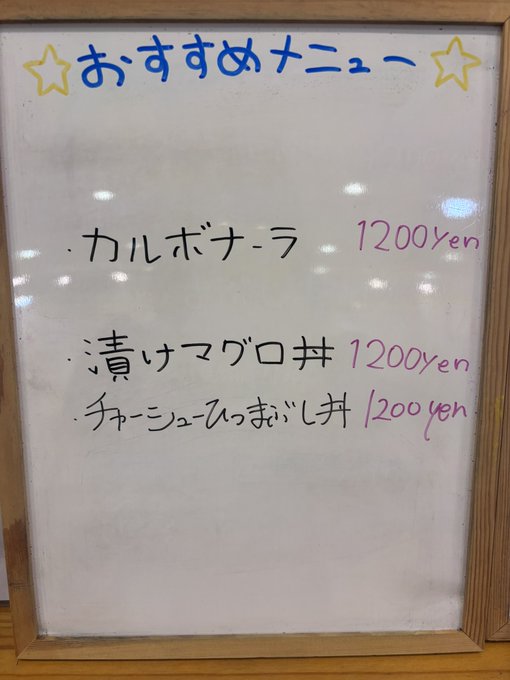 ☆おすすめメニュー☆
・カルボナーラ 1200yen
・漬けマグロ丼 1200yen
・チャーシューひつまぶし丼 1200yen